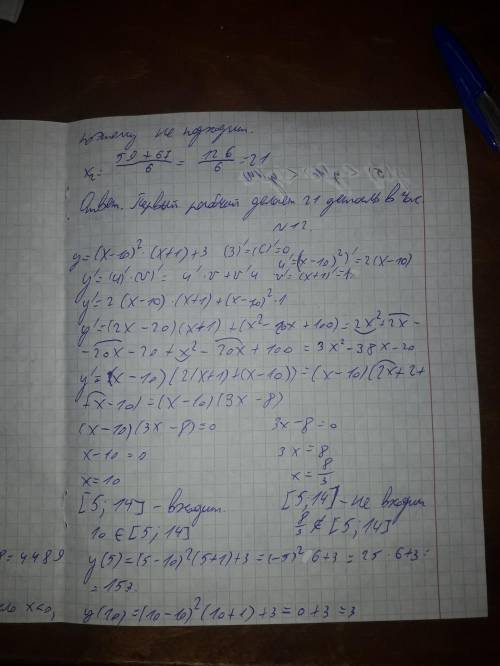 поэтому не подходит.
x₂ = (59+67)/6 = 126/6 = 21
Ответ. Первый рабочий делает 21 деталь в час
N12.
y=(x-10)²·(x+1)+3 (3)'=(C)'=0
u'=((x-10)²)'=2(x-10)
y'=(u)'·(v)'= u'·v+v'u v'=(x+1)'=1.
y'=2(x-10)·(x+1)+(x-10)²·1
y'=(2x-20)(x+1)+(x²-20x+100)=2x²+2x-
-20x-20+x²-20x+100=3x²-38x-20
y'=(x-10)(2(x+1)+(x-10))=(x-10)(2x+2+
+x-10)=(x-10)(3x-8)
(x-10)(3x-8)=0 3x-8=0
x-10=0 3x=8
x=10 x=8/3
[5;14]-входит. [5,14]-не входит
10∈[5;14] 8/3∉[5;14]
y(5)=(5-10)²(5+1)+3=(-5)²·6+3=25·6+3=
=4489
=157.
x<0,
y(10)=(10-10)²(10+1)+3=0+3=3